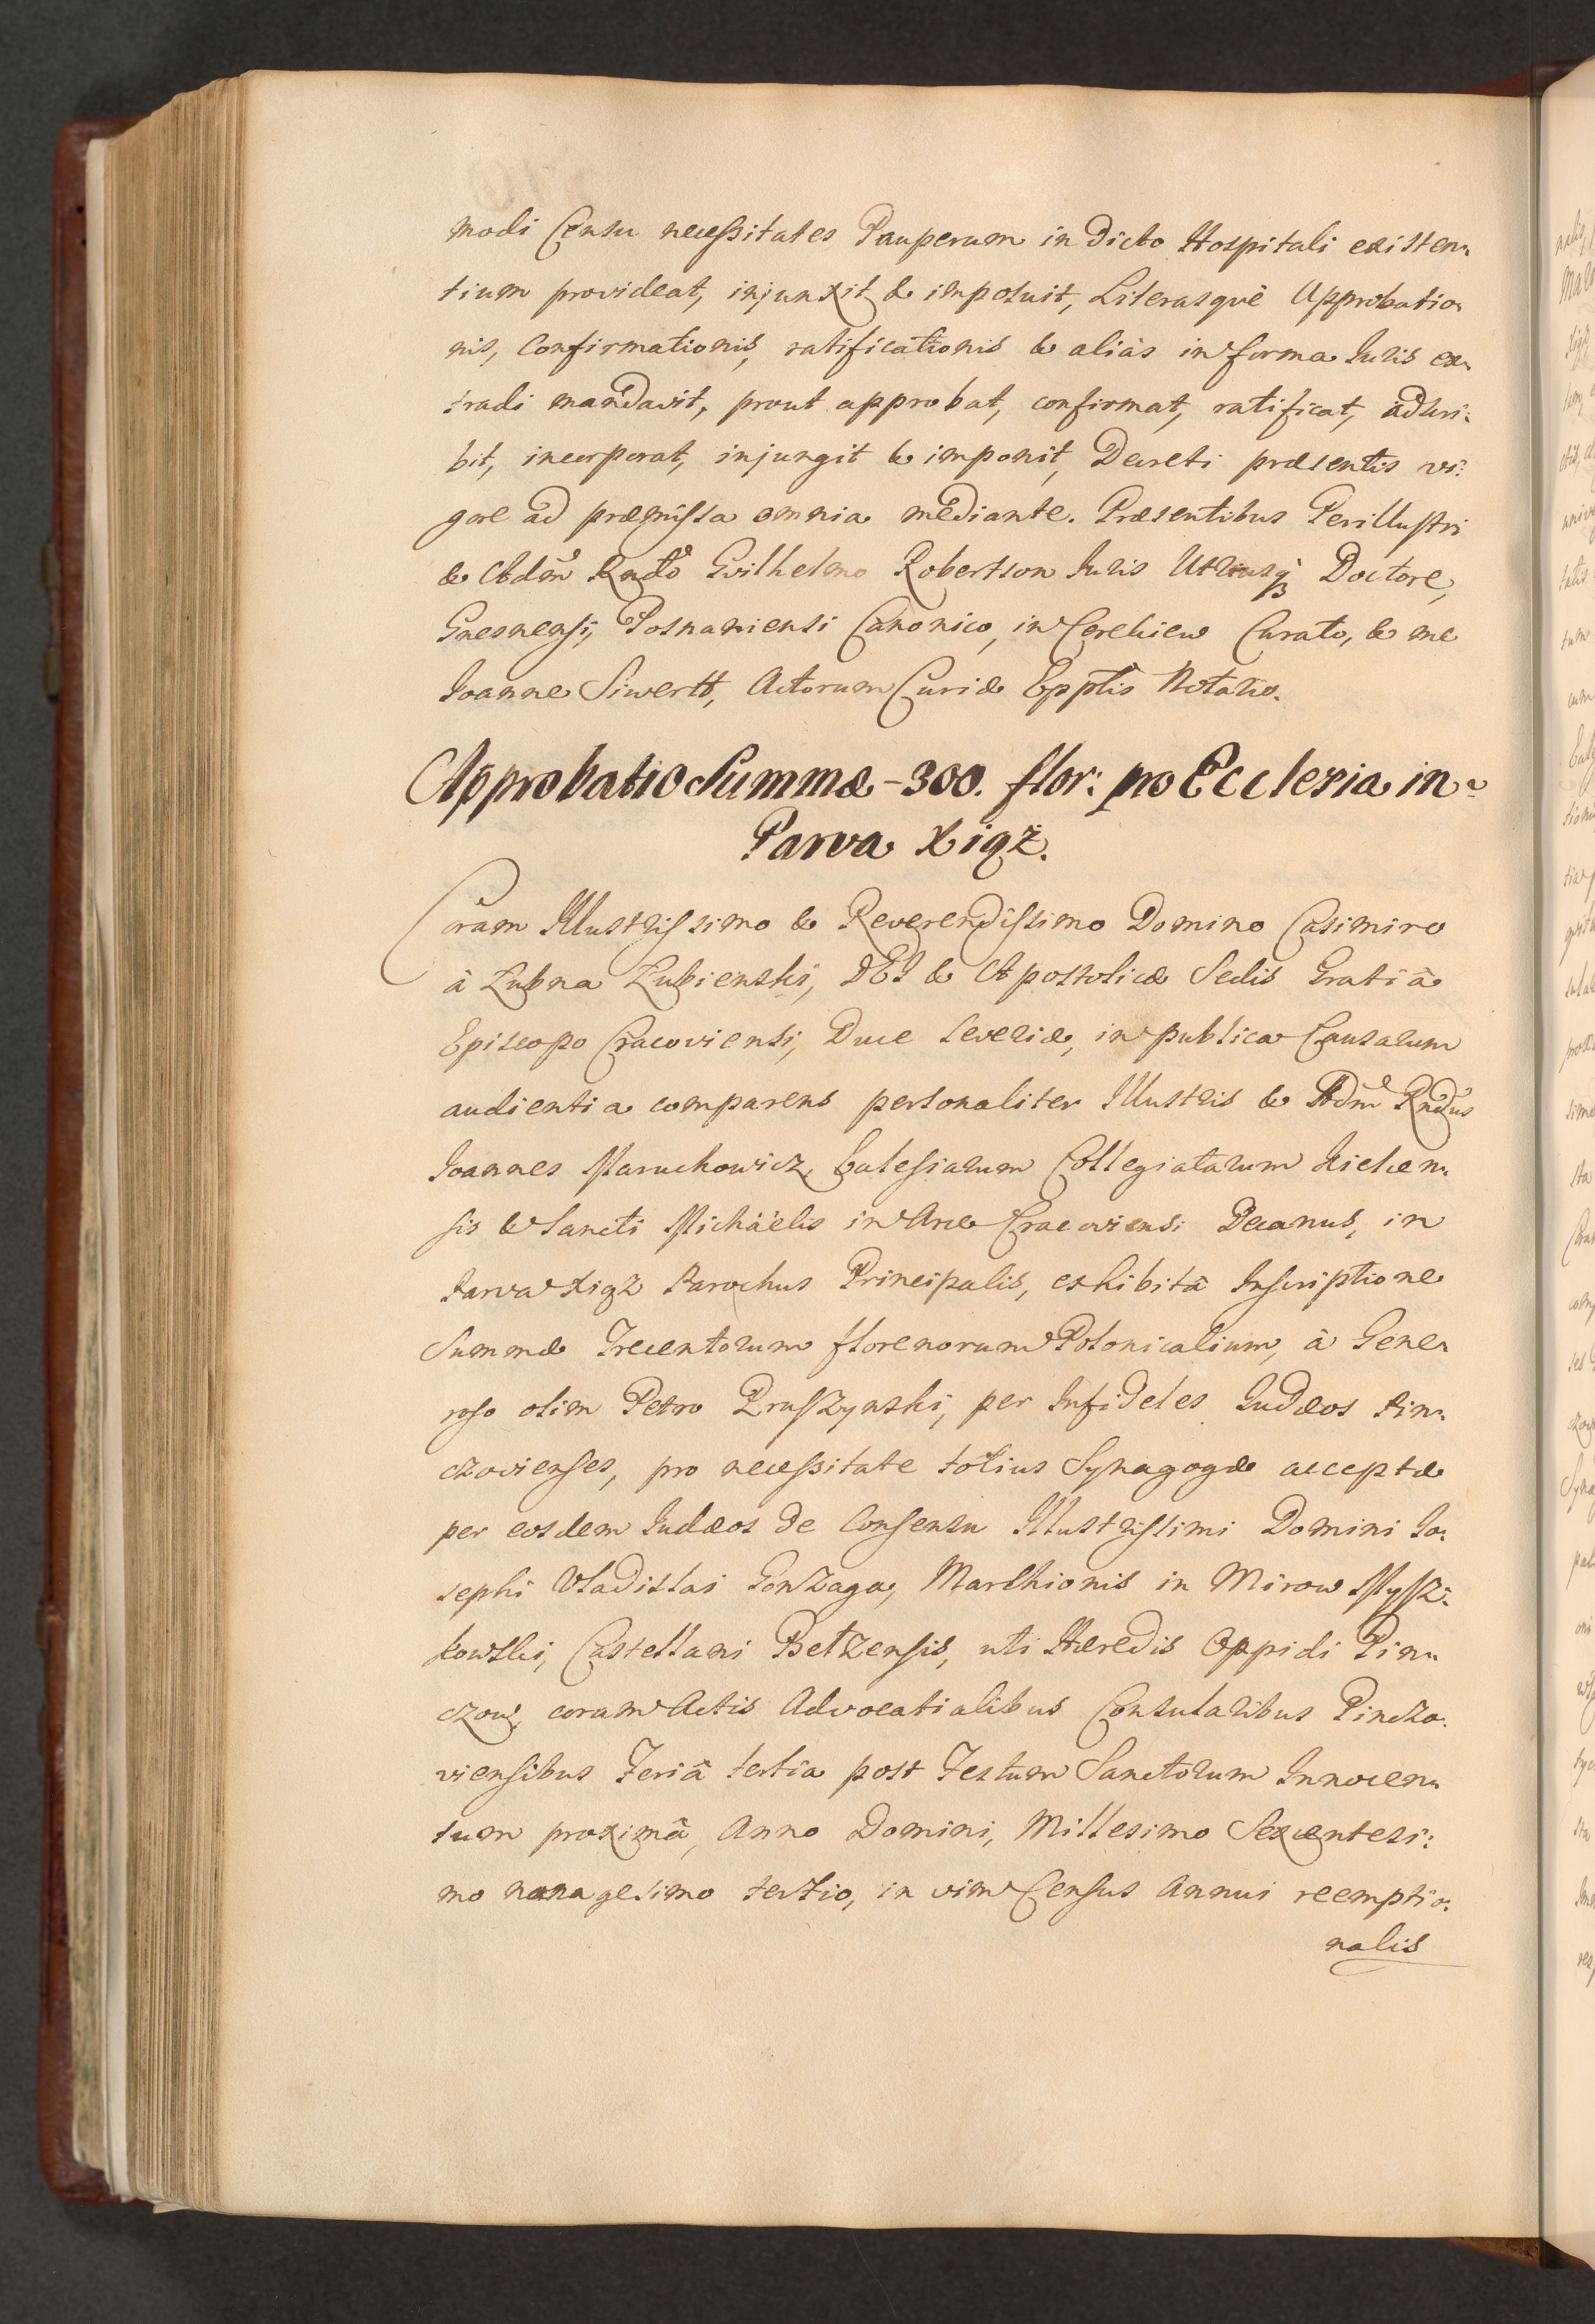 modi Censu necessitates Pauperum in dicto Hospitali existen„
tium provideat, injunxit & imposuit, Literasquè Approbatio„
nis, Confirmationis, ratificationis & aliàs in forma Iuris ex„
tradi mandavit, prout approbat, confirmat, ratificat, adscri:
bit, incorporat, injungit & imponit, Decreti præsentis vi:
gore ad præmissa omnia mediante. Præsentibus Perillustri
& Adm Rndo Gvilhelmo Robertson Iuris Utriusq; Doctore,
Gnesnensi, Posnaniensi Canonico, in Corchiew Curato, & me
Ioanne Siwertt, Actorum Curiæ Epptis Notario.
Approbatio Summæ - 300. flor: pro Ecclesia in„
Parva Xiąż.
Coram Illustrissimo & Reverendissimo Domino Casimiro
à Łubna Łubienski, DEI & Apostolicæ Sedis Gratiâ
Episcopo Cracoviensi, Duce Severiæ, in publica Causarum
audientia comparens personaliter Illustris & Adm Rndus
Ioannes Maruchowicz, Ecclesiarum Collegiatarum Kielcen„
sis & Sancti Michäelis in Arce Cracoviensi Decanus, in
Parva Xiąz Parochus Principalis, exhibitâ Inscriptione
Summæ Trecentorum florenorum Polonicalium, à Gene„
roso olim Petro Pruszynski, per Infideles Iudæos Pin„
czovienses, pro necessitate totius Synagogæ acceptæ
per eosdem Iudæos de Consensu Illustrissimi Domini Io:
sephi Vladislai Gonzaga, Marchionis in Mirow Myszt:
kowski, Castellani Betzensis, uti Hæredis Oppidi Pin„
czow, coram Actis Advocatialibus Consularibus Pinczo:
viensibus Feriâ tertia post Festum Sanctorum Innocen„
tum proximâ, Anno Domini, Millesimo Sexcentesi:
mo nonagesimo tertio, in vim Census Annui reemptio:
nalis